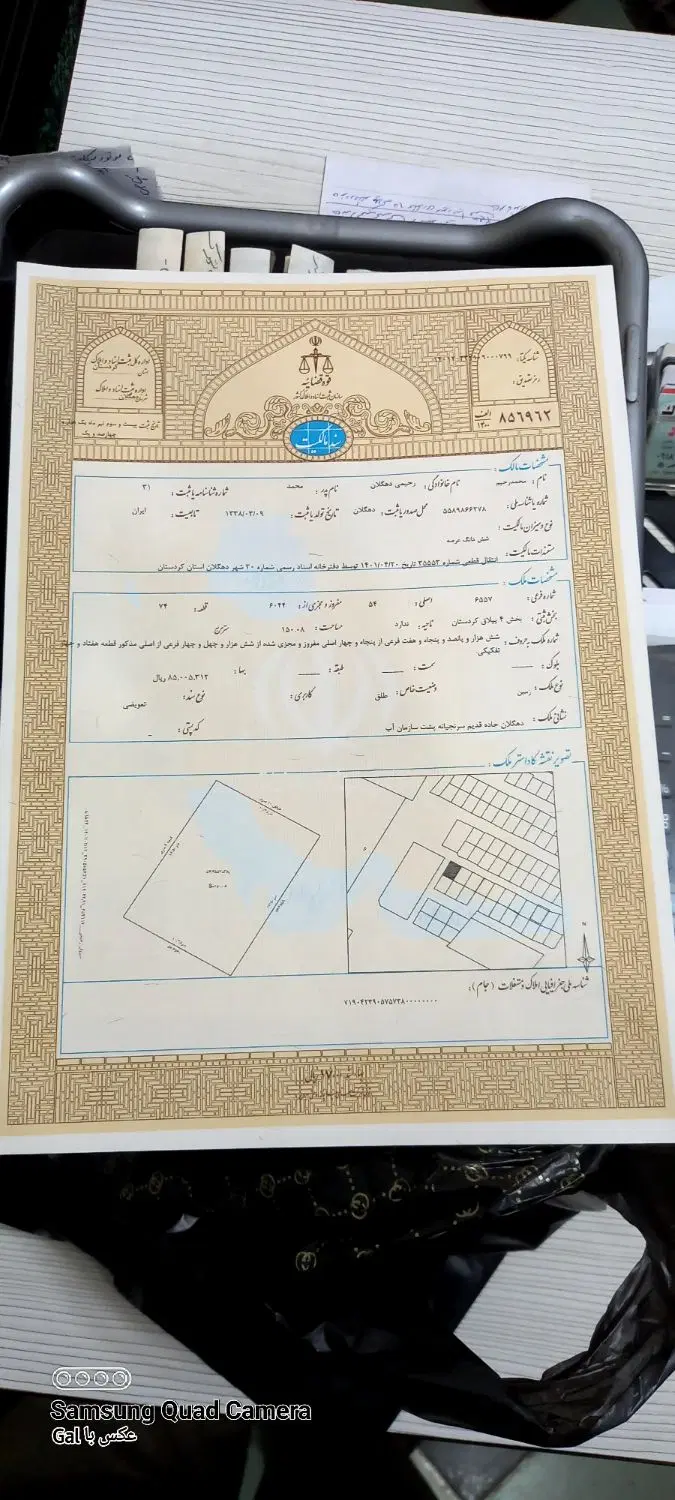 قوه قضاییه
سازمان ثبت اسناد و املاک کشور
سند مالکیت
شناسه یکتا:
رمز تصدیق:
الف ۸۵۶۹۶۲
۱۴۰۰
تاریخ ثبت بیست و سوم تیر ماه یک هزار و چهارصد و یک
مشخصات مالک:
نام: محمدرحیم نام خانوادگی: رحیمی دهگلان نام پدر: محمد شماره شناسنامه یا ثبت: ۳۱
شماره یا شناسه ملی: ۵۵۸۹۸۶۶۲۷۸ محل صدور یا ثبت: دهگلان تاریخ تولد یا ثبت: ۱۳۳۸/۰۳/۰۹ تابعیت: ایران
نوع و میزان مالکیت: شش دانگ عرصه
مستندات مالکیت: انتقال قطعی شماره ۳۵۵۵۳ تاریخ ۱۴۰۱/۰۴/۲۰ توسط دفترخانه اسناد رسمی شماره ۳۰ شهر دهگلان استان کردستان
مشخصات ملک:
شماره فرعی: ۶۵۵۷ اصلی: ۵۴ مفروز و مجزی از: ۶۰۴۴ قطعه: ۷۴
بخش ثبتی: بخش ۴ ییلاق کردستان ناحیه: ندارد مساحت: ۱۵۰.۰۸ مترمربع
شماره ملک به حروف: شش هزار و پانصد و پنجاه و هفت فرعی از پنجاه و چهار اصلی مفروز و مجزی شده از شش هزار و چهل و چهار فرعی از اصلی مذکور قطعه هفتاد و چهار تفکیکی
بلوک: ____ سمت: ____ طبقه: ____ بها: ۸۵,۰۰۵,۳۱۲ ریال
نوع ملک: زمین وضعیت خاص: طلق کاربری: نوع سند: تعویضی
نشانی ملک: دهگلان جاده قدیم سرنجیانه پشت سازمان آب کد پستی: -
تصویر نقشه کاداستر ملک:
N
شناسه ملی جغرافیایی املاک و مستغلات (جام):
۷۱۹۰۴۲۳۹۰۵۷۵۷۳۸۰۰۰۰۰۰۰۰
Samsung Quad Camera
عکس با Gal